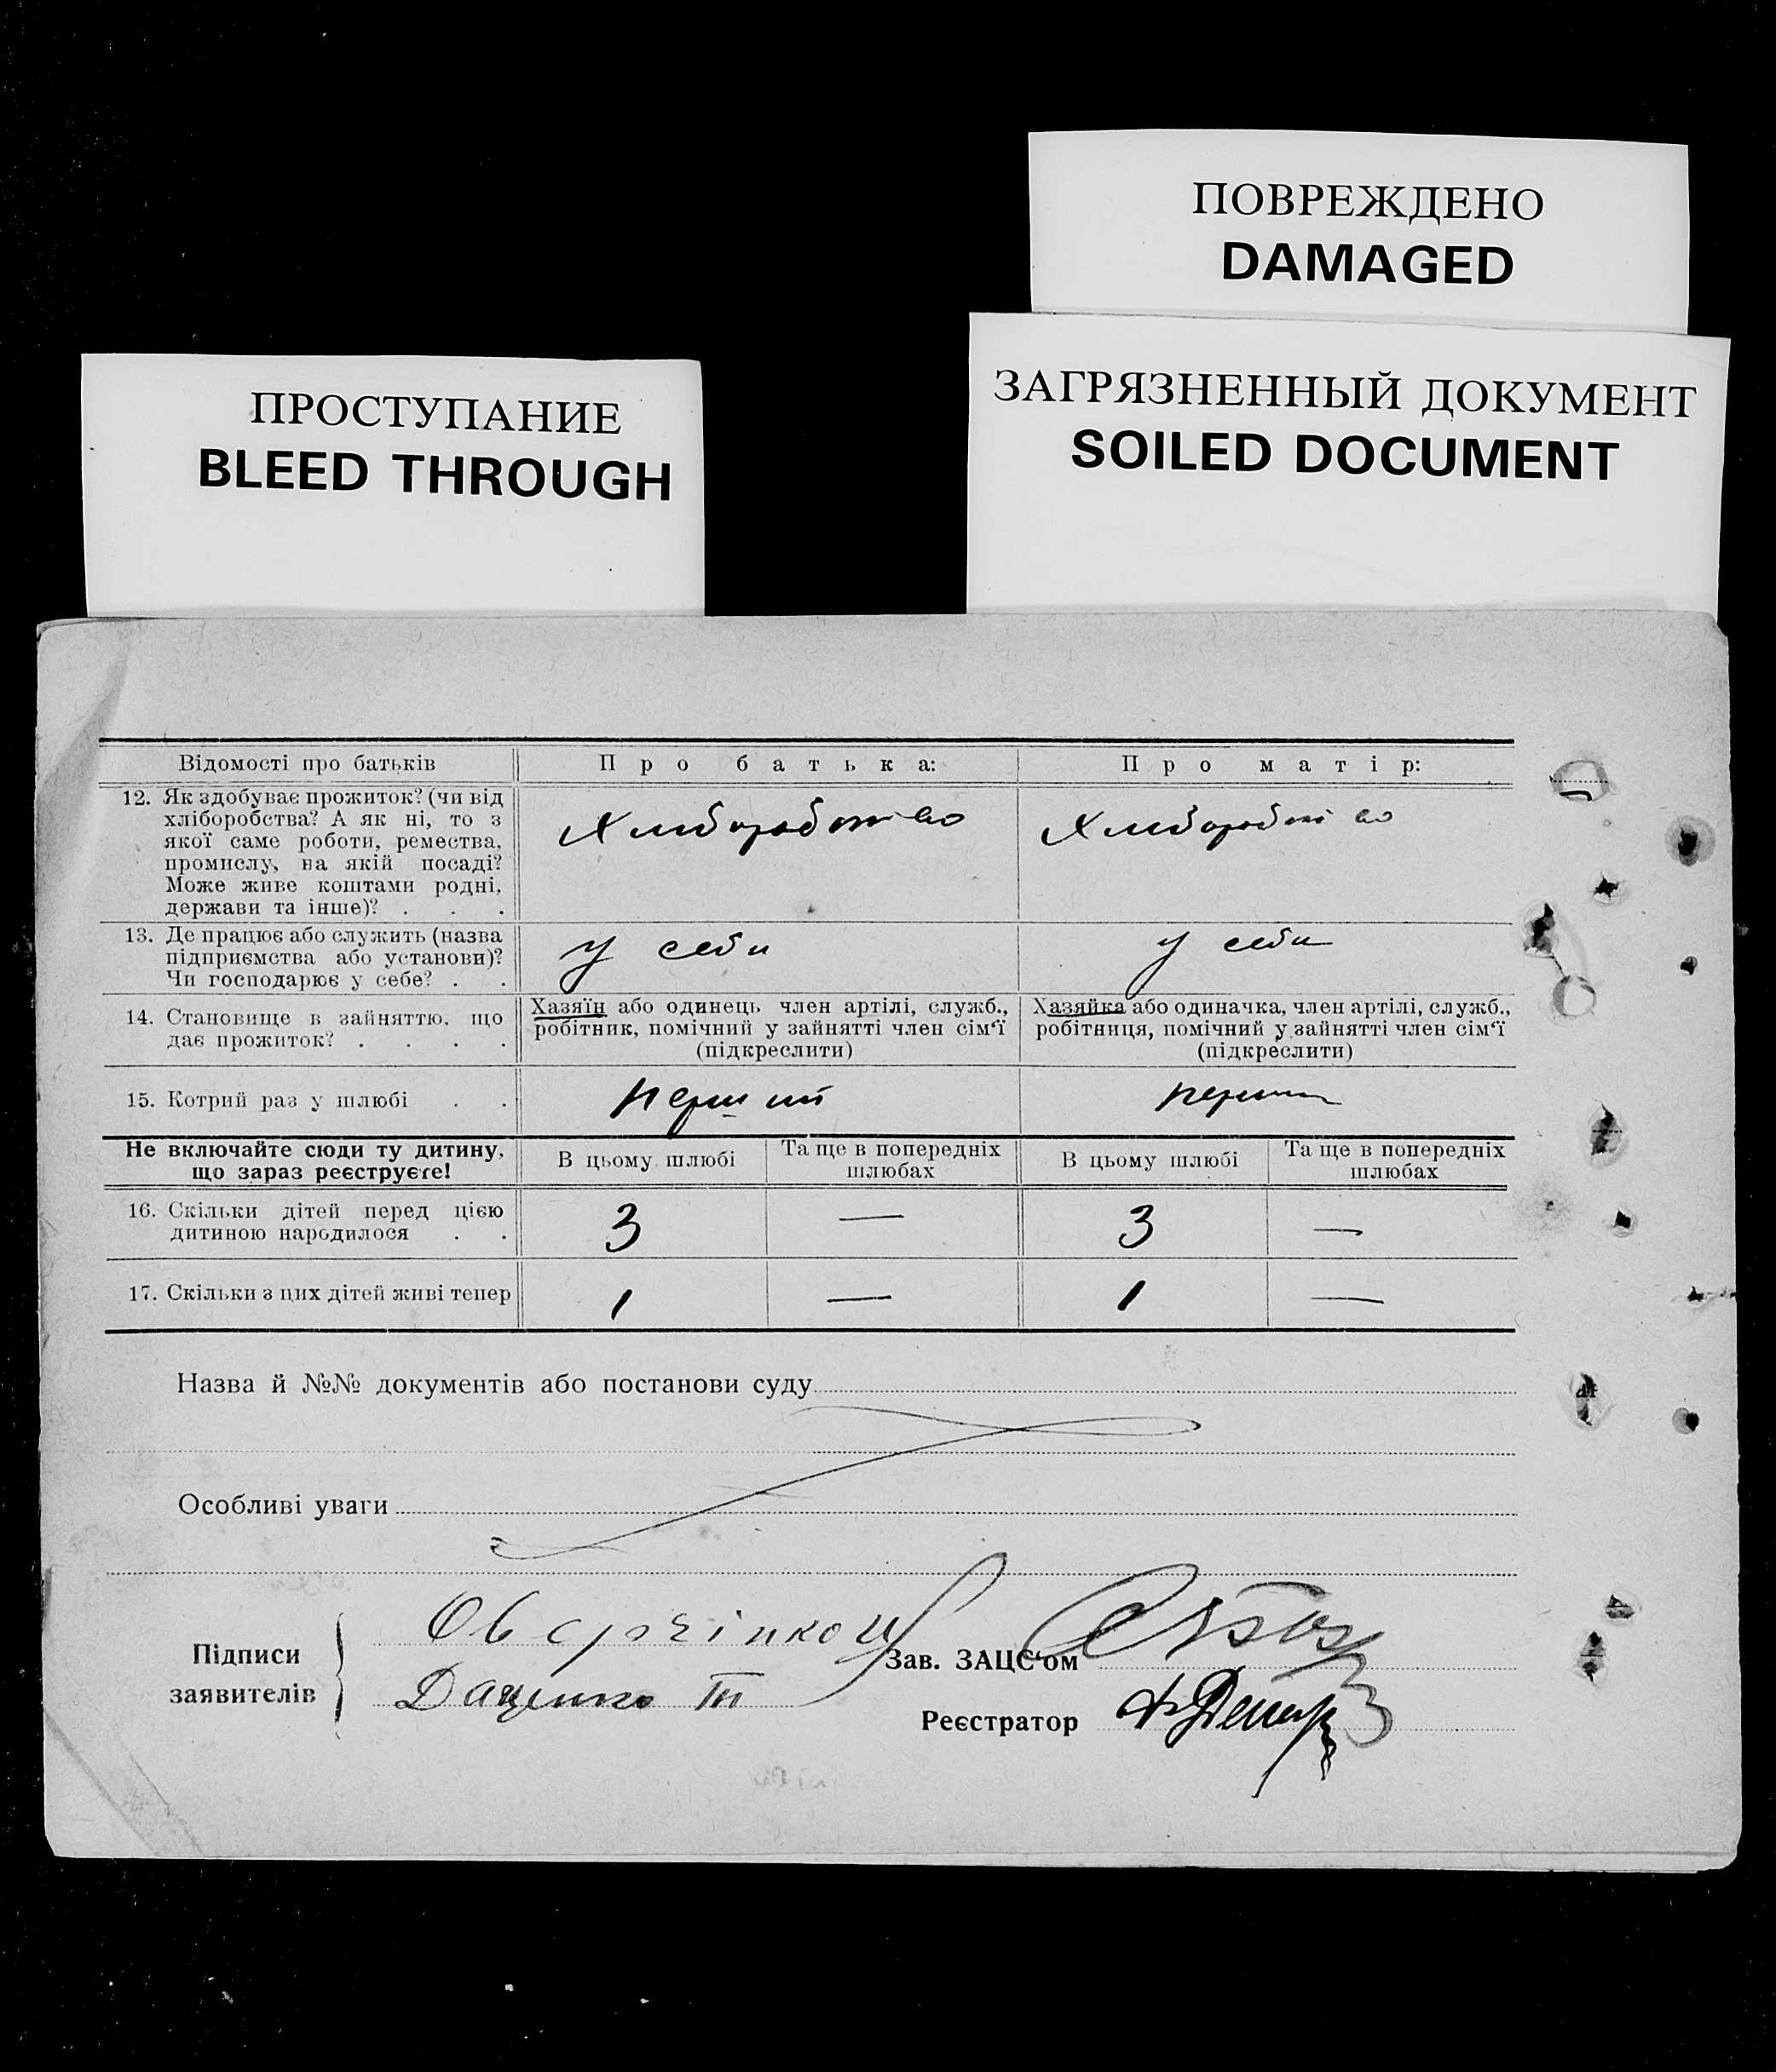 ПОВРЕЖДЕНО
DAMAGED
ПРОСТУПАНИЕ
BLEED THROUGH
ЗАГРЯЗНЕННЫЙ ДОКУМЕНТ
SOILED DOCUMENT
Відомості про батьків
Про батька:
Про матір:
12. Як здобуває прожиток? (чи від
хліборобства? А як ні, то з
якої саме роботи, ремества,
промислу, на якій посаді?
Може живе коштами родні,
держави та інше)? . . .
Хліборобство
Хліборобство
13. Де працює або служить (назва
підприємства або установи)?
Чи господарює у себе? . .
у себи
у себи
14. Становище в зайняттю, що
дає прожиток? . . . .
Хазяїн або одинець член артілі, служб.,
робітник, помічний у зайнятті член сім'ї
(підкреслити)
Хазяйка або одиначка, член артілі, служб.,
робітниця, помічний у зайнятті член сім'ї
(підкреслити)
15. Котрий раз у шлюбі . .
перший
Не включайте сюди ту дитину,
що зараз реєструєте!
В цьому шлюбі
Та ще в попередніх
шлюбах
В цьому шлюбі
Та ще в попередніх
шлюбах
16. Скільки дітей перед цією
дитиною народилося . .
3
—
3
—
17. Скільки з цих дітей живі тепер
1
—
1
—
Назва й №№ документів або постанови суду
Особливі уваги
Підписи
заявителів
Даценко
Зав. ЗАЦС'ом
Реєстратор